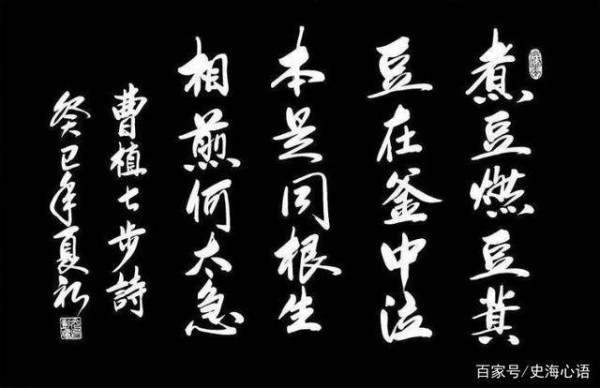 煮豆燃豆萁
豆在釜中泣
本是同根生
相煎何太急
曹植七步詩
癸巳年夏初
百家号/史海心语